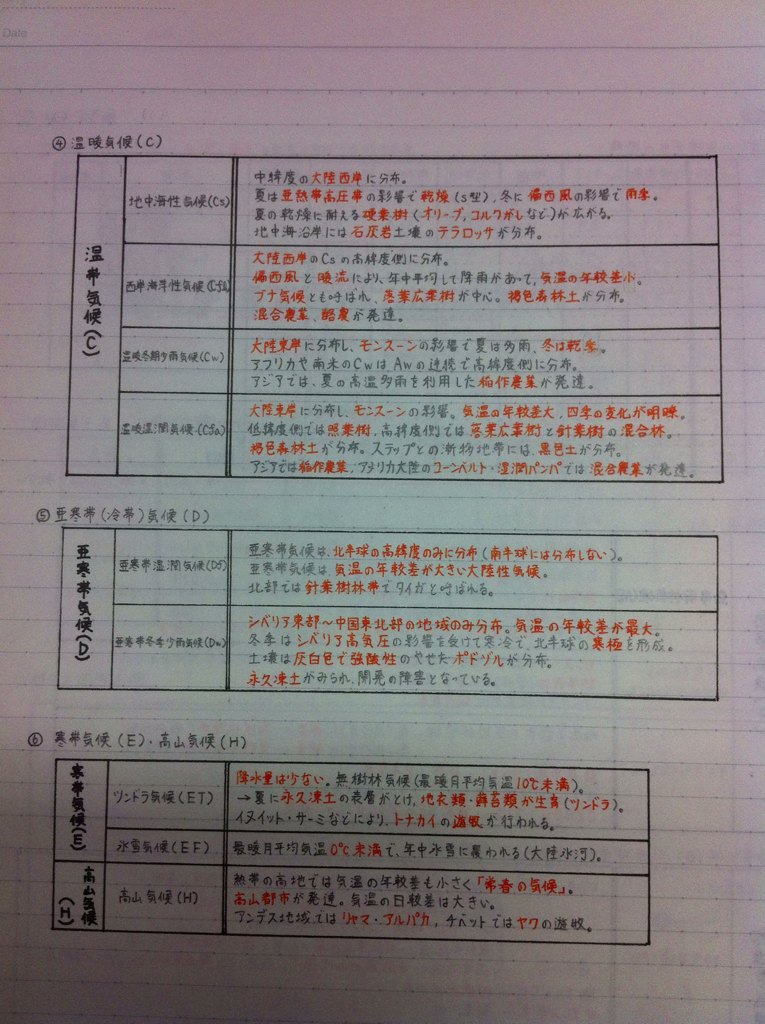 Date
④ 温暖気候(C)
温帯気候(C)
地中海性気候(Cs)
中緯度の大陸西岸に分布。
夏は亜熱帯高圧帯の影響で乾燥(s型),冬に偏西風の影響で雨季。
夏の乾燥に耐える硬葉樹(オリーブ,コルクがしなど)が広がる。
地中海沿岸には石灰岩土壌のテラロッサが分布。
西岸海洋性気候(Cfb)
大陸西岸のCsの高緯度側に分布。
偏西風と暖流により,年中平均して降雨があって,気温の年較差小。
ブナ気候とも呼ばれ、落葉広葉樹が中心。褐色森林土が分布。
混合農業、酪農が発達。
温暖冬期少雨気候(Cw)
大陸東岸に分布し、モンスーンの影響で夏は多雨、冬は乾季。
アフリカや南米のCwはAwの連続で高緯度側に分布。
アジアでは、夏の高温多雨を利用した稲作農業が発達。
温暖湿潤気候(Cfa)
大陸東岸に分布し、モンスーンの影響。気温の年較差大,四季の変化が明瞭。
低緯度側では照葉樹,高緯度側では落葉広葉樹と針葉樹の混合林。
褐色森林土が分布。ステップとの漸移地帯には、黒色土が分布。
アジアでは稲作農業,アメリカ大陸のコーンベルト・湿潤パンパでは混合農業が発達。
⑤ 亜寒帯(冷帯)気候(D)
亜寒帯気候(D)
亜寒帯湿潤気候(Df)
亜寒帯気候は、北半球の高緯度のみに分布(南半球には分布しない)。
亜寒帯気候は気温の年較差が大きい大陸性気候。
北部では針葉樹林帯でタイガと呼ばれる。
亜寒帯冬季少雨気候(Dw)
シベリア東部~中国東北部の地域のみ分布。気温の年較差が最大。
冬季はシベリア高気圧の影響を受けて寒冷で、北半球の寒極を形成。
土壌は灰白色で強酸性のやせたポドゾルが分布。
永久凍土がみられ、開発の障害となっている。
⑥ 寒帯気候(E)・高山気候(H)
寒帯気候(E)
ツンドラ気候(ET)
降水量は少ない。無樹林気候(最暖月平均気温10℃未満)。
→夏に永久凍土の表層がとけ,地衣類・蘚苔類が生育(ツンドラ)。
イヌイット・サーミなどにより、トナカイの遊牧が行われる。
氷雪気候(EF)
最暖月平均気温0℃未満で、年中氷雪に覆われる(大陸氷河)。
高山気候(H)
高山気候(H)
熱帯の高地では気温の年較差も小さく「常春の気候」。
高山都市が発達。気温の日較差は大きい。
アンデス地域ではリャマ・アルパカ,チベットではヤクの遊牧。